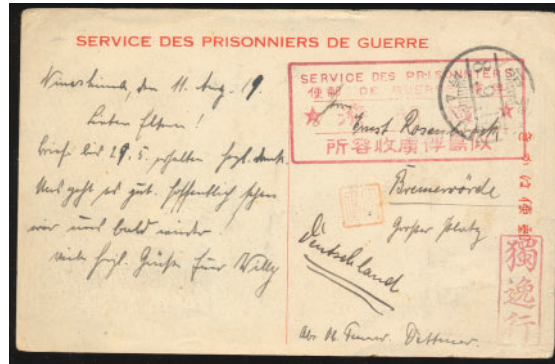 SERVICE DES PRISONNIERS DE GUERRE
Ninoshima, den 11. Aug. 19.
Lieben Eltern!
Briefe bis 29.5. erhalten herzl. Dank.
Uns geht es gut. Hoffentlich sehen
wir uns bald wieder.
Viele herzl. Grüsse Euer Willy
SERVICE DES PRISONNIERS
DE GUERRE
便郵
Herrn
Ernst Rosenbrock
所容收虜俘島似
Bremervörde
Großer Platz
Deutschland
Abs.
Dettmer.
きかは便郵
獨逸行